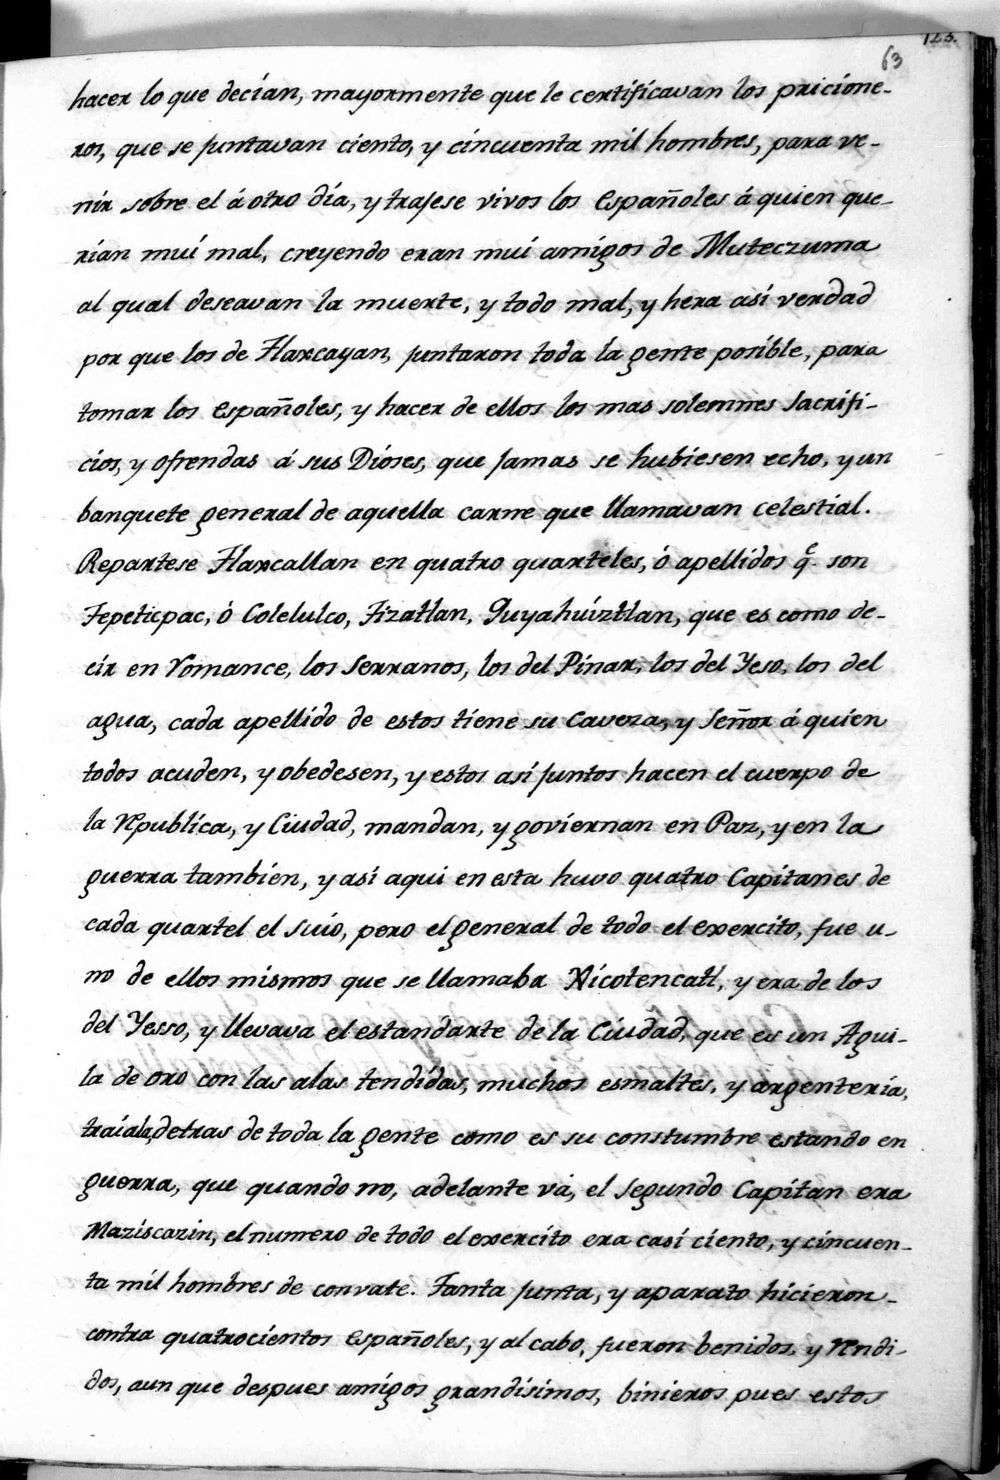 125.
63
hacer lo que decian, mayormente que le certificavan los pricione-
ros, que se juntavan ciento, y cincuenta mil hombres, para ve-
nir sobre el á otro dia, y trajese vivos los Españoles á quien que-
rian mui mal, creyendo eran mui amigos de Muteczuma
al qual deseavan la muerte, y todo mal, y hera asi verdad
por que los de Tlaxcayan, juntaron toda la gente posible, para
tomar los Españoles, y hacer de ellos los mas solemnes Sacrifi-
cios, y ofrendas á sus Dioses, que jamas se hubiesen echo, y un
banquete general de aquella carne que llamavan celestial.
Repartese Tlaxcallan en quatro quarteles, ó apellidos q.e son
Tepeticpac, ó Colelulco, Tizatlan, Quyahuiztlan, que es como de-
cir en Romance, los Serranos, los del Pinar, los del Yeso, los del
agua, cada apellido de estos tiene su Caveza, y Señor á quien
todos acuden, y obedesen, y estos asi juntos hacen el cuerpo de
la Republica, y Ciudad, mandan, y goviernan en Paz, y en la
guerra tambien, y asi aqui en esta huvo quatro Capitanes de
cada quartel el suio, pero el general de todo el exercito, fue u-
no de ellos mismos que se llamaba Xicotencatl, y era de los
del Yesso, y llevava el estandarte de la Ciudad, que es un Agui-
la de oro con las alas tendidas, muchos esmaltes, y argenteria,
traiala, detras de toda la gente como es su constumbre estando en
guerra, que quando no, adelante vá, el segundo Capitan era
Maziscazin, el numero de todo el exercito era casi ciento, y cincuen-
ta mil hombres de convate. Tanta junta, y aparato hicieron-
contra quatrocientos Españoles, y al cabo, fueron benidos, y rendi-
dos, aun que despues amigos grandisimos, binieros pues estos